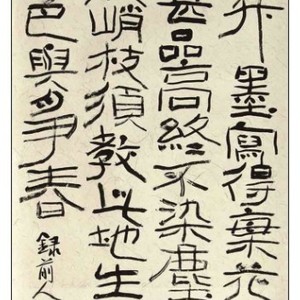 墨寫得棄花
品高終不染塵
枝須教此地生
色與爭春
録前人